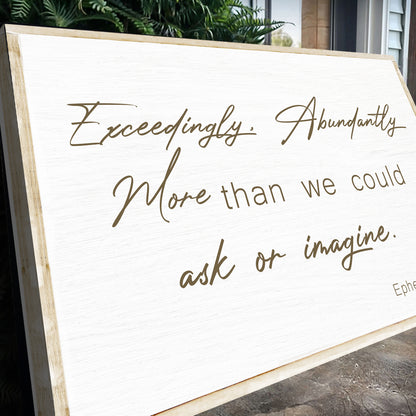 Exceedingly, Abundantly
More than we could
ask or imagine.
Ephe